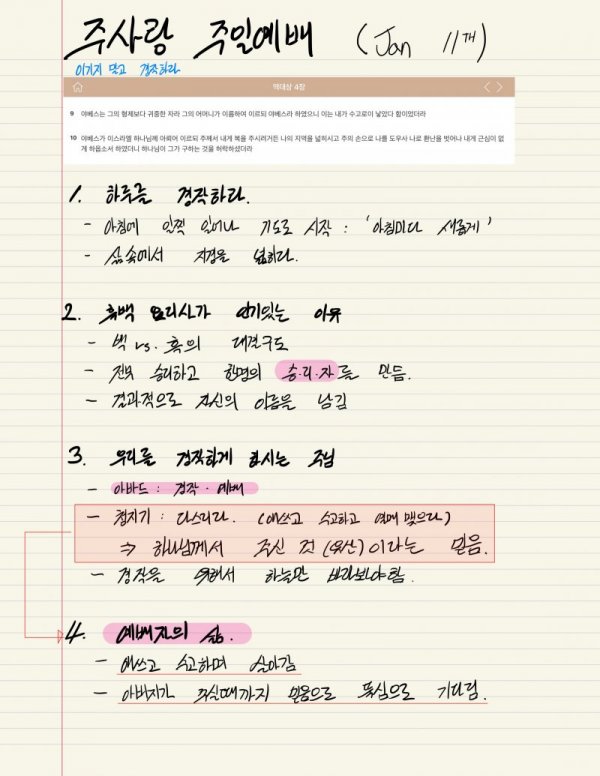 주사랑 주일예배 (Jan 11개)
이기지 말고 경작하라
역대상 4장
9 야베스는 그의 형제보다 귀중한 자라 그의 어머니가 이름하여 이르되 야베스라 하였으니 이는 내가 수고로이 낳았다 함이었더라
10 야베스가 이스라엘 하나님께 아뢰어 이르되 주께서 내게 복을 주시려거든 나의 지역을 넓히시고 주의 손으로 나를 도우사 나로 환난을 벗어나 내게 근심이 없
게 하옵소서 하였더니 하나님이 그가 구하는 것을 허락하셨더라
1. 하루를 경작하라.
- 아침에 일찍 일어나 기도로 시작 : '아침마다 새롭게'
- 삶속에서 지경을 넓히다.
2. 흑백 요리사가 인기있는 이유
- 백 vs. 흑의 대결구도
- 전부 승리하고 한명의 승리자를 만듬.
- 결과적으로 자신의 이름을 남김
3. 우리를 경작하게 하시는 주님
- 아바드 : 경작 · 예배
- 청지기 : 다스리다. (애쓰고 수고하고 열매 맺으다)
⇒ 하나님께서 주신 것 (유산) 이라는 믿음.
- 경작을 위해서 하늘만 바라보아야함.
4. 예배자의 삶.
- 애쓰고 수고하며 살아감
- 아버지가 주실때까지 믿음으로 뚝심으로 기다림.